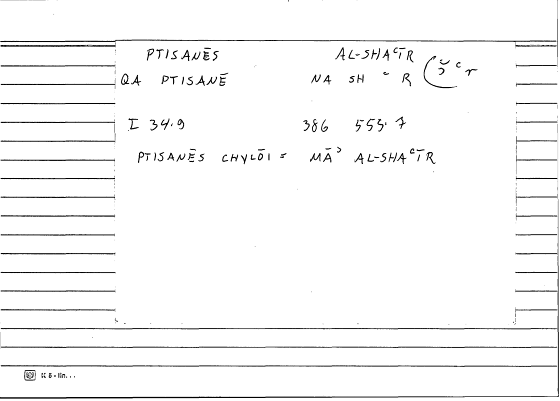 PTISANĒS AL-SHAʿĪR
QA PTISANĒ NA SH ʿ R
I 34.9 386 553.7
PTISANĒS CHYLŌI = MĀʾ AL-SHAʿĪR